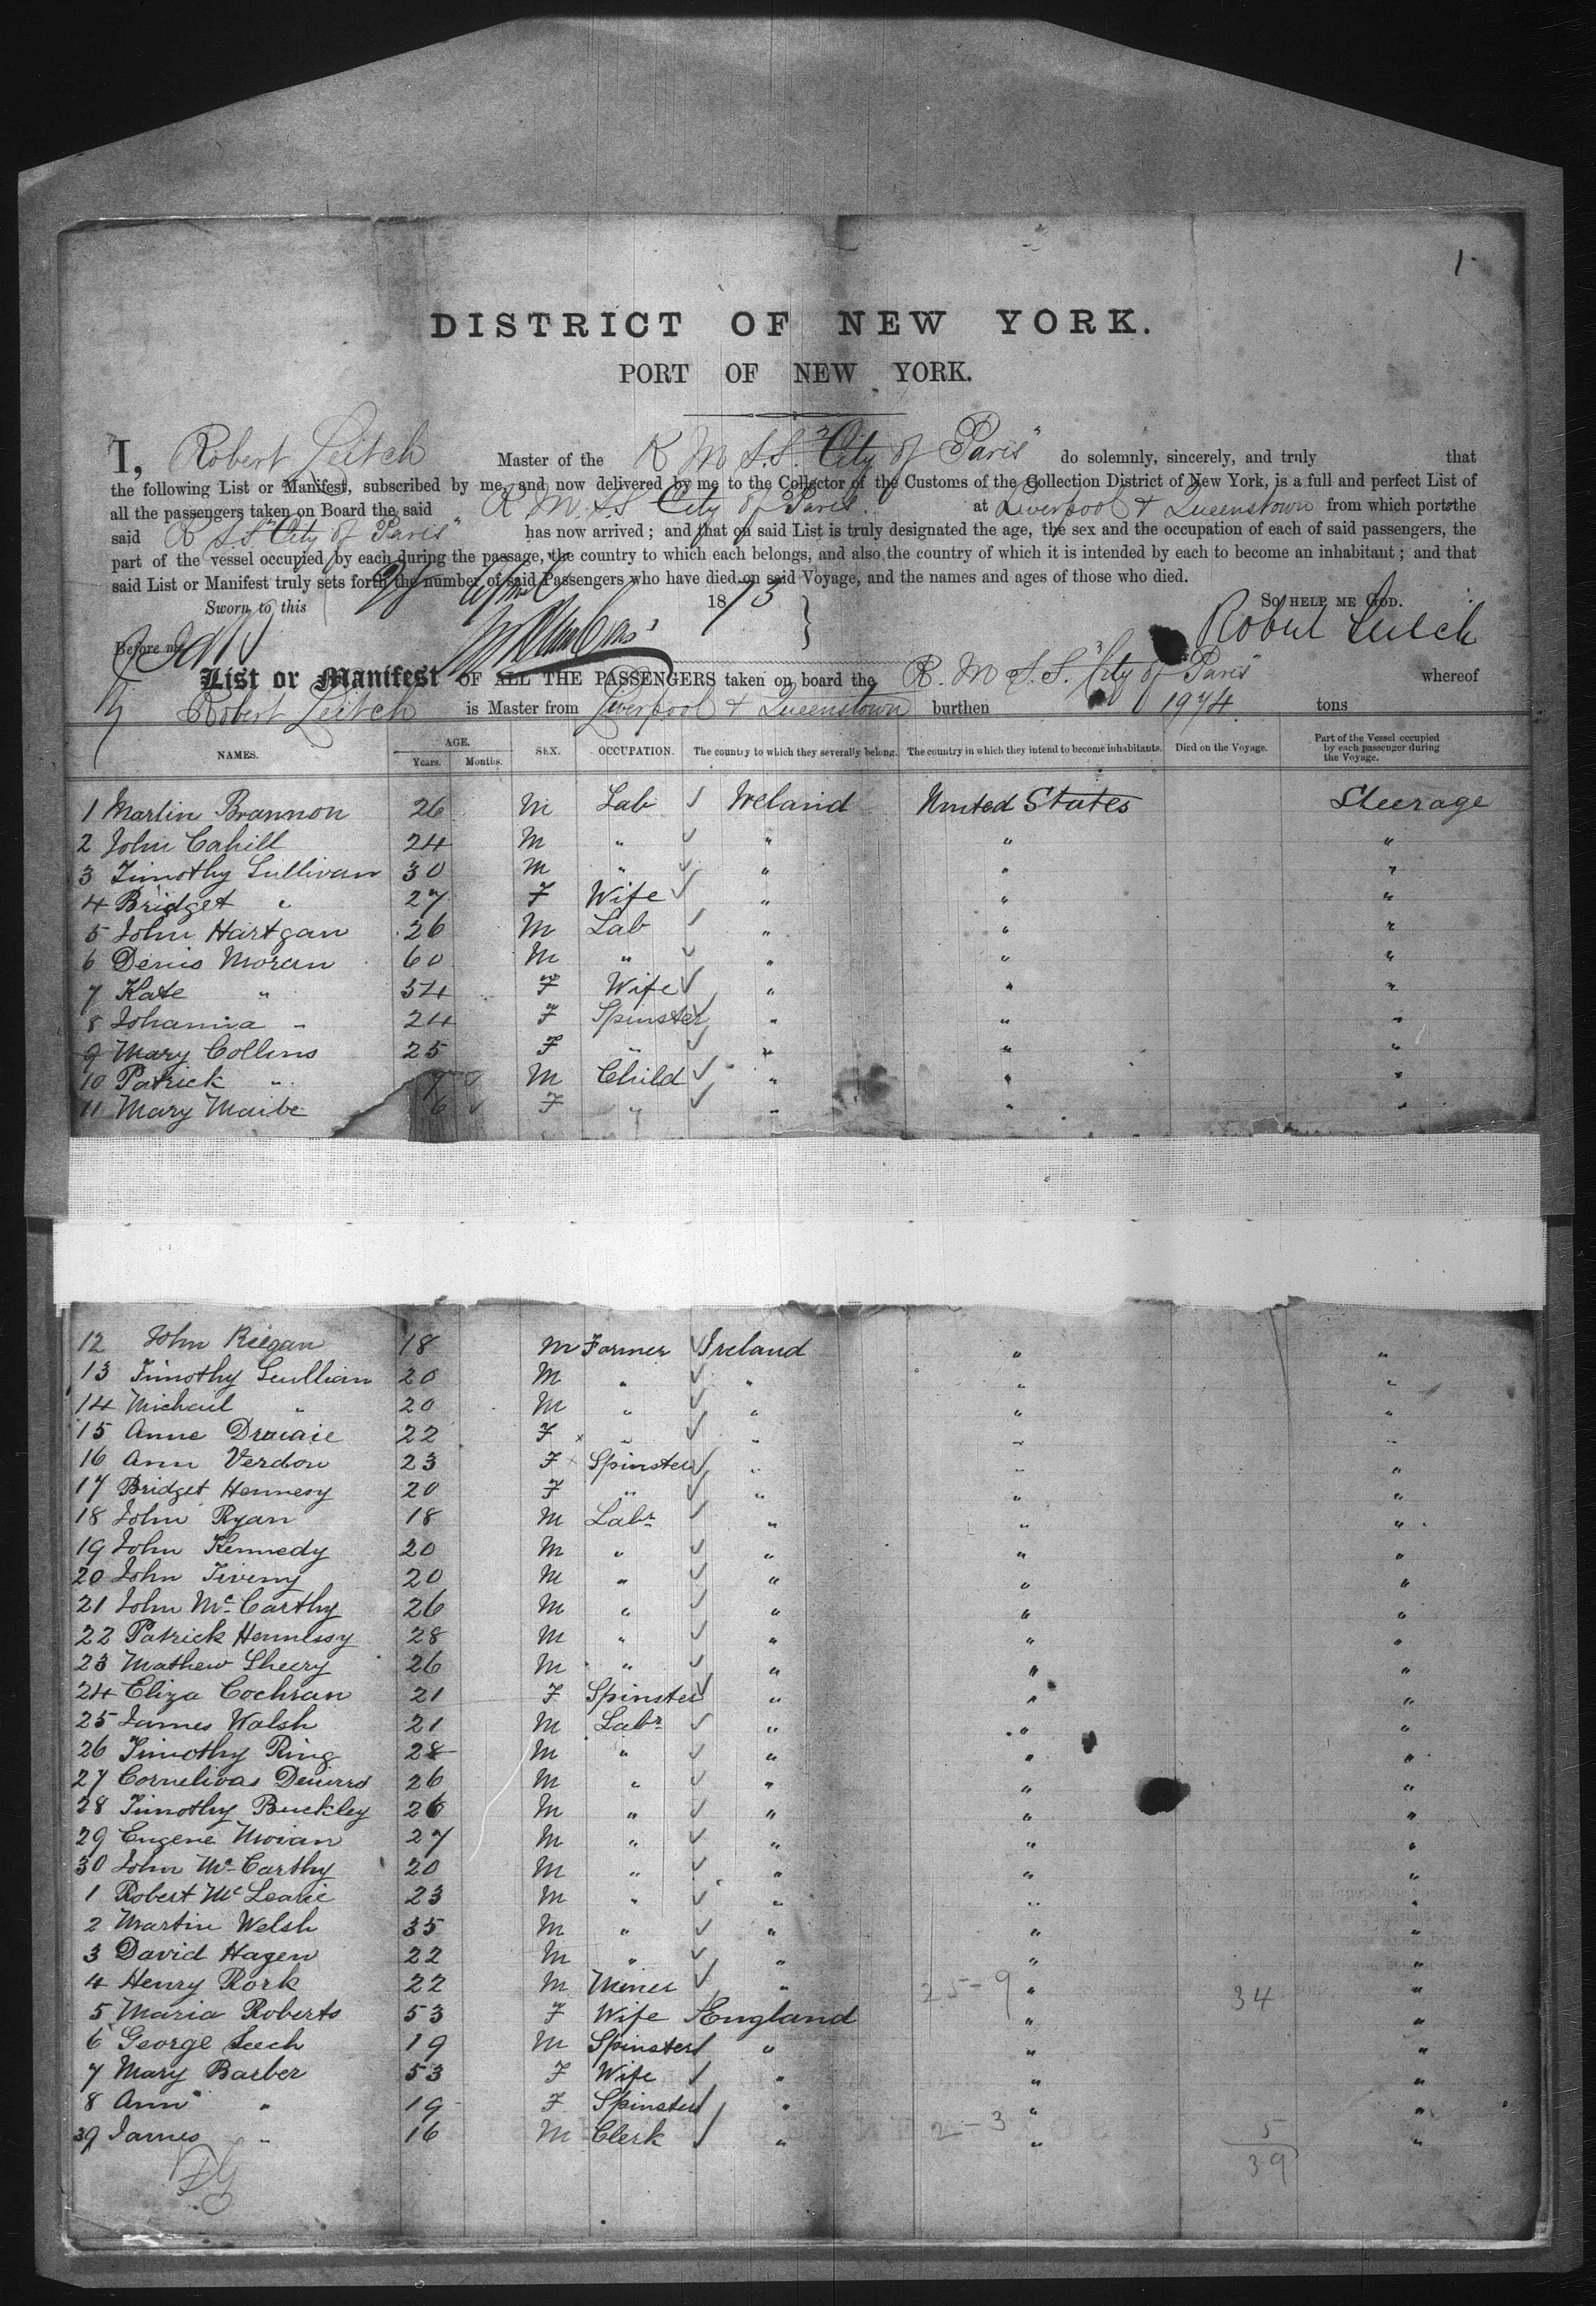 1
DISTRICT OF NEW YORK.
PORT OF NEW YORK.
I, Robert Leitch Master of the R M S.S. "City of Paris" do solemnly, sincerely, and truly that
the following List or Manifest, subscribed by me, and now delivered by me to the Collector of the Customs of the Collection District of New York, is a full and perfect List of
all the passengers taken on Board the said R M S.S City of Paris. at Liverpool & Queenstown from which ports the
said R S.S "City of Paris" has now arrived; and that on said List is truly designated the age, the sex and the occupation of each of said passengers, the
part of the vessel occupied by each during the passage, the country to which each belongs, and also the country of which it is intended by each to become an inhabitant; and that
said List or Manifest truly sets forth the number of said Passengers who have died on said Voyage, and the names and ages of those who died.
Sworn to this April 1873 SO HELP ME GOD.
Before me Robert Leitch
List or Manifest OF ALL THE PASSENGERS taken on board the R. M S.S. "City of Paris" whereof
Robert Leitch is Master from Liverpool & Queenstown burthen 1974 tons
NAMES. AGE. Years. Months. SEX. OCCUPATION. The country to which they severally belong. The country in which they intend to become inhabitants. Died on the Voyage. Part of the Vessel occupied by each passenger during the Voyage.
1 Martin Brannon 26 M Lab ✓ Ireland United States Steerage
2 John Cahill 24 M " ✓ " " "
3 Timothy Sullivan 30 M " ✓ " " "
4 Bridget " 27 F Wife ✓ " " "
5 John Hartgan 26 M Lab ✓ " " "
6 Denis Moran 60 M " ✓ " " "
7 Kate " 54 F Wife ✓ " " "
8 Johanna " 24 F Spinster ✓ " " "
9 Mary Collins 25 F " ✓ " " "
10 Patrick " 7 ✓ M Child ✓ " " "
11 Mary Maibe 6 ✓ F " ✓ " " "
12 John Reegan 18 M Farmer ✓ Ireland " "
13 Timothy Seullian 20 M " ✓ " " "
14 Michail " 20 M " ✓ " " "
15 Anne 22 F × " ✓ " " "
16 Ann Verdon 23 F × Spinster ✓ " " "
17 Bridget Hennesy 20 F " ✓ " " "
18 John Ryan 18 M Labr ✓ " " "
19 John Kennedy 20 M " ✓ " " "
20 John 20 M " ✓ " " "
21 John Mc Carthy 26 M " ✓ " " "
22 Patrick Hennessy 28 M " ✓ " " "
23 Mathew Sheery 26 M " ✓ " " "
24 Eliza Cochran 21 F Spinster ✓ " " "
25 James Walsh 21 M Labr ✓ " " "
26 Timothy Ring 28 M " ✓ " " "
27 Cornelivas 26 M " ✓ " " "
28 Timothy Buckley 26 M " ✓ " " "
29 Eugene Moran 27 M " ✓ " " "
30 John Mc Carthy 20 M " ✓ " " "
1 Robert Mc Learie 23 M " ✓ " " "
2 Martin Welsh 35 M " ✓ " " "
3 David Hagen 22 M " ✓ " " "
4 Henry Rork 22 M Miner ✓ " 25-9 " 34 "
5 Maria Roberts 53 F Wife ✓ England " "
6 George Leech 19 M Spinster ✓ " " "
7 Mary Barber 53 F Wife ✓ " " "
8 Ann " 19 F Spinster ✓ " " "
39 James " 16 M Clerk ✓ " 2-3 " 5 "
39